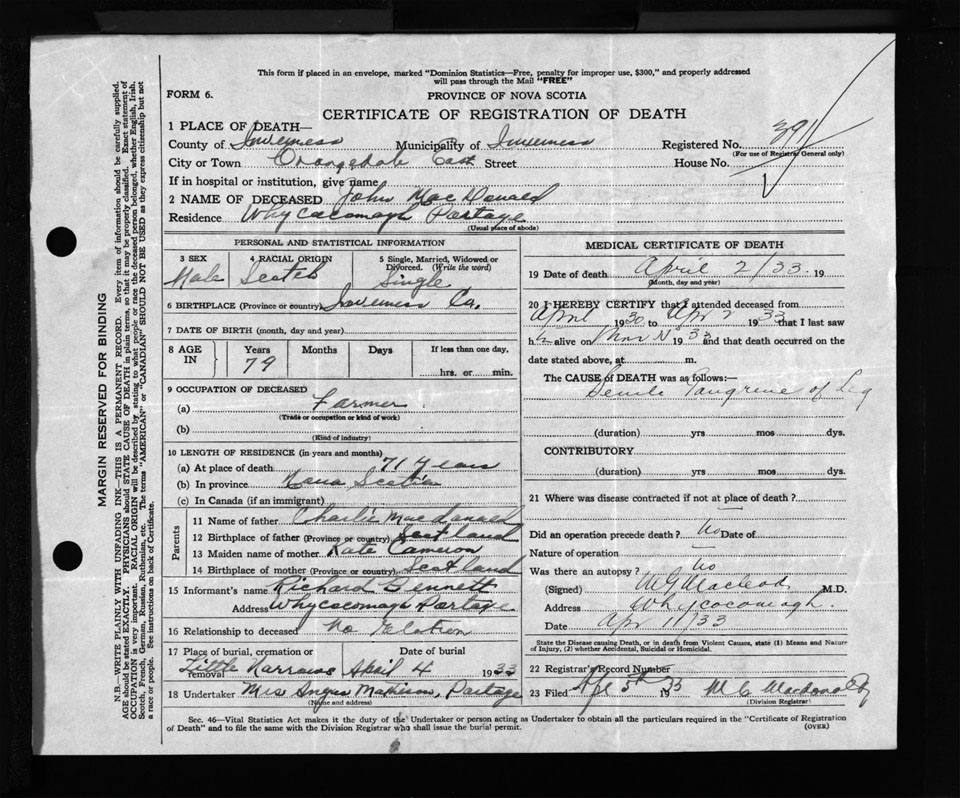 This form if placed in an envelope, marked "Dominion Statistics—Free, penalty for improper use, $300," and properly addressed
will pass through the Mail "FREE"
FORM 6.
PROVINCE OF NOVA SCOTIA
CERTIFICATE OF REGISTRATION OF DEATH
1 PLACE OF DEATH—
County of Inverness Municipality of Inverness Registered No. 391
(For use of Registrar General only)
City or Town Orangedale East Street House No.
If in hospital or institution, give name
2 NAME OF DECEASED John MacDonald
Residence Whycocomagh Portage
(Usual place of abode)
PERSONAL AND STATISTICAL INFORMATION
3 SEX 4 RACIAL ORIGIN 5 Single, Married, Widowed or
Divorced. (Write the word)
Male Scotch Single
6 BIRTHPLACE (Province or country) Inverness Co.
7 DATE OF BIRTH (month, day and year)
8 AGE IN Years Months Days If less than one day,
79 hrs. or min.
9 OCCUPATION OF DECEASED
(a) Farmer
(Trade or occupation or kind of work)
(b)
(Kind of industry)
10 LENGTH OF RESIDENCE (in years and months)
(a) At place of death 71 Years
(b) In province Nova Scotia
(c) In Canada (if an immigrant)
Parents
11 Name of father Charlie MacDonald
12 Birthplace of father (Province or country) Scotland
13 Maiden name of mother Kate Cameron
14 Birthplace of mother (Province or country) Scotland
15 Informant's name Richard Bennett
Address Whycocomagh Portage
16 Relationship to deceased No Relation
17 Place of burial, cremation or removal Date of burial
Little Narrows April 4 1933
18 Undertaker Mrs Angus Portage
(Name and address)
MEDICAL CERTIFICATE OF DEATH
19 Date of death April 2/33. 19
(Month, day and year)
20 I HEREBY CERTIFY that I attended deceased from
April 1930 to Apr 2 1933 that I last saw
h alive on Mar 1933 and that death occurred on the
date stated above, at m.
The CAUSE of DEATH was as follows:—
Senile Gangrene of Leg
(duration) yrs mos dys.
CONTRIBUTORY
(duration) yrs mos dys.
21 Where was disease contracted if not at place of death?
Did an operation precede death? No Date of
Nature of operation
Was there an autopsy? No
(Signed) Macleod M.D.
Address Whycocomagh
Date Apr 11/33
State the Disease causing Death, or in death from Violent Causes, state (1) Means and Nature
of Injury, (2) whether Accidental, Suicidal or Homicidal.
22 Registrar's Record Number
23 Filed Apl 5th 1933 M C Macdonald
(Division Registrar)
Sec. 46—Vital Statistics Act makes it the duty of the Undertaker or person acting as Undertaker to obtain all the particulars required in the "Certificate of Registration
of Death" and to file the same with the Division Registrar who shall issue the burial permit.
(OVER)
MARGIN RESERVED FOR BINDING
N.B.—WRITE PLAINLY WITH UNFADING INK—THIS IS A PERMANENT RECORD. Every item of information should be carefully supplied.
AGE should be stated EXACTLY. PHYSICIANS should STATE CAUSE OF DEATH in plain terms, so that it may be properly classified. Exact statement of
OCCUPATION is very important. RACIAL ORIGIN will be described by stating to what people or race the deceased person belonged, whether English, Irish,
Scotch, French, German, Russian, Ruthenian, etc. The terms "AMERICAN" or "CANADIAN" SHOULD NOT BE USED as they express citizenship but not
a race or people. See instructions on back of Certificate.